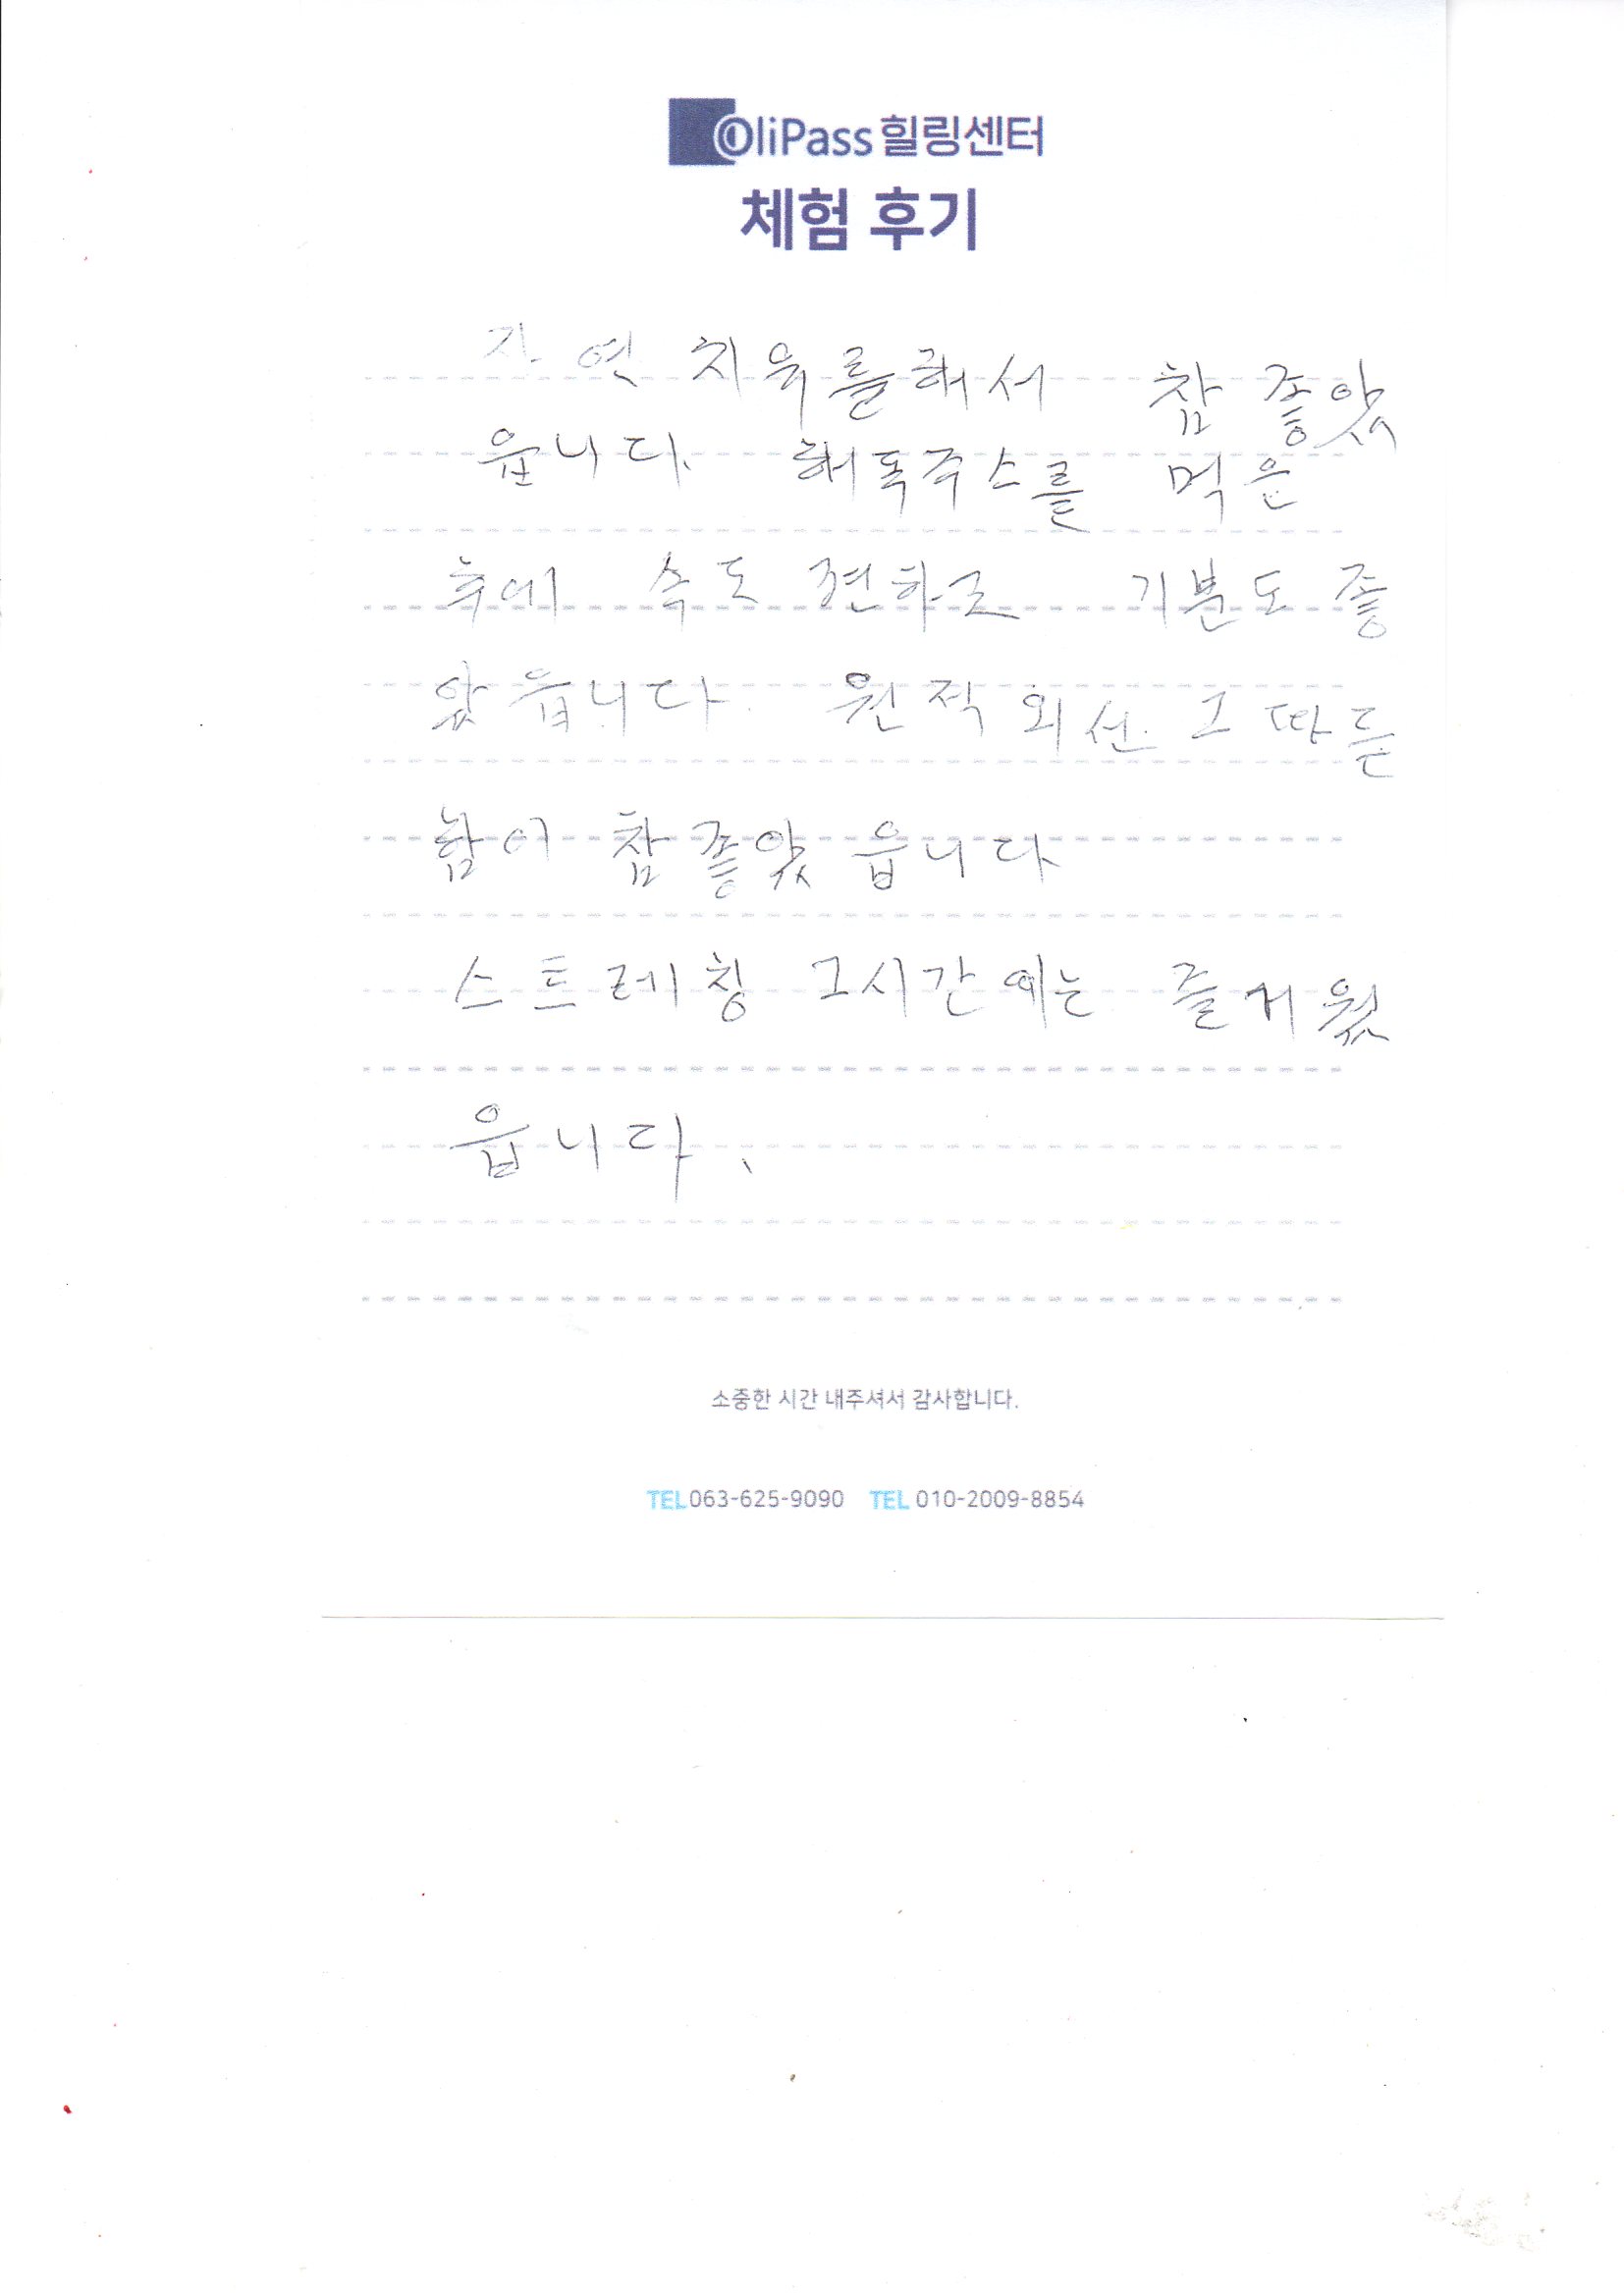 OliPass 힐링센터
체험 후기
자연 치유를해서 참 좋았
읍니다. 해독주스를 먹은
후에 속도 편하고 기분도 좋
았읍니다. 원적외선 그 따뜻
함이 참 좋았읍니다
스트레칭 그시간에는 즐거웠
읍니다.
소중한 시간 내주셔서 감사합니다.
TEL 063-625-9090 TEL 010-2009-8854